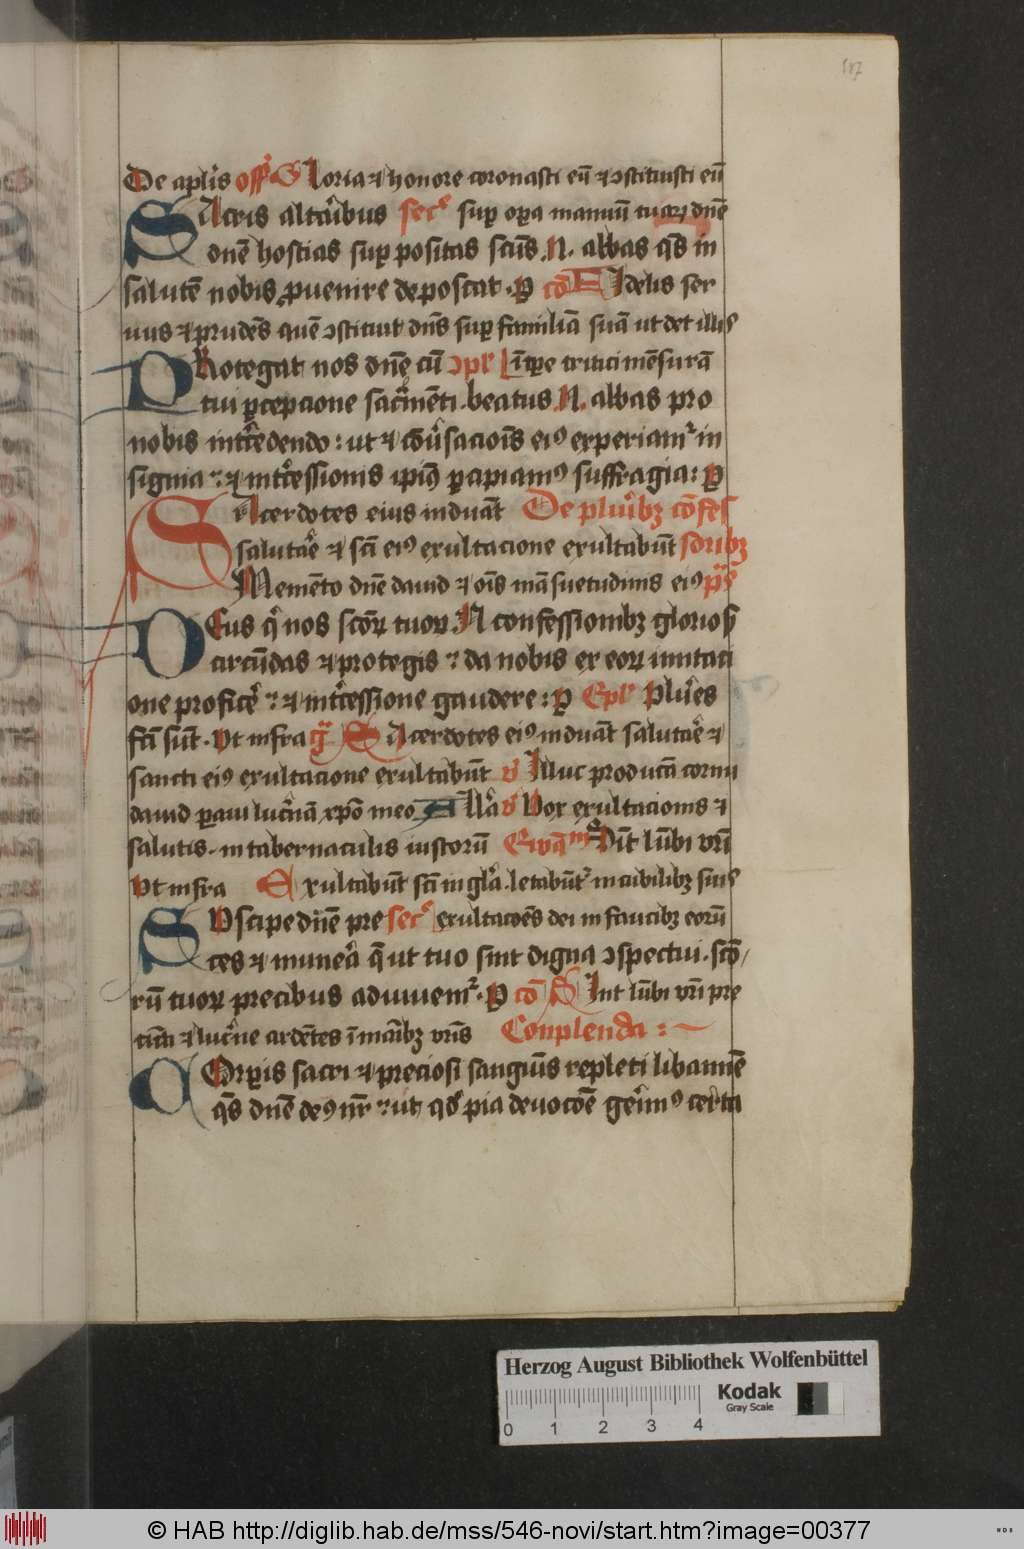 187
De aplis off Gloria ⁊ honore coronasti eū ⁊ ɔstituisti eū
SAcris altaribus secͬ sup opa manuū tuaꝝ dnē
dnē hostias sup positas scūs .N. abbas qs in
salutē nobis ꝓuenire deposcat . P cō FIdelis ser
uus ⁊ prudēs quē ɔstituit dns sup familiā suā ut det illis
PRotegat nos dnē cū ɔple ī tpe tritici mēsurā
tui pcepcione sacͬmēti . beatus .N. abbas pro
nobis intͬcedendo : ut ⁊ cōuͬsacioīs eiꝰ experiamͬ in
signia : ⁊ intͬcessionis ipiꝰ pcipiamꝰ suffragia : P
SAcerdotes eius induāt De pluribꝫ cōfes
salutaͬe ⁊ scī eiꝰ exultacione exultabūt soribꝫ
Memēto dnē dauid ⁊ oīs māsuetudinis eiꝰ ps
DEus qͥ nos scōꝝ tuoꝝ N confessionibꝫ gloriosͥ
circūdas ⁊ protegis : da nobis ex eoꝝ imitaci
one proficeͬ : ⁊ intͬcessione gaudere : P Epl Plures
fcī sūt . Vt infra gͣ SAcerdotes eiꝰ induāt salutaͬe ⁊
sancti eiꝰ exultacione exultabūt v Illuc producā cornu
dauid paui lucͬnā xpō meo Alla v Vox exultacionis ⁊
salutis . in tabernaculis iustorū Ewāᵐ Sīt lūbi vrī
Vt infra Exultabūt scī in glͣa . letabūtͬ in cubilibꝫ suis
SVscipe dnē pre secͬ exultacōēs dei in faucibꝫ eorū
ces ⁊ muneͬa qͣ ut tuo sint digna ɔspectui . scō/
rū tuoꝝ precibus adiuuemͬ . P cō SInt lūbi vrī pre
cīcti ⁊ lucͬne ardētes ī maībꝫ vrīs Conplenda :
COrpis sacri ⁊ preciosi sanguīs repleti libamīe
qs dnē deꝰ nr : ut qd pia deuocōē geͬimꝰ certa
Herzog August Bibliothek Wolfenbüttel
0 1 2 3 4
Kodak
Gray Scale
© HAB http://diglib.hab.de/mss/546-novi/start.htm?image=00377